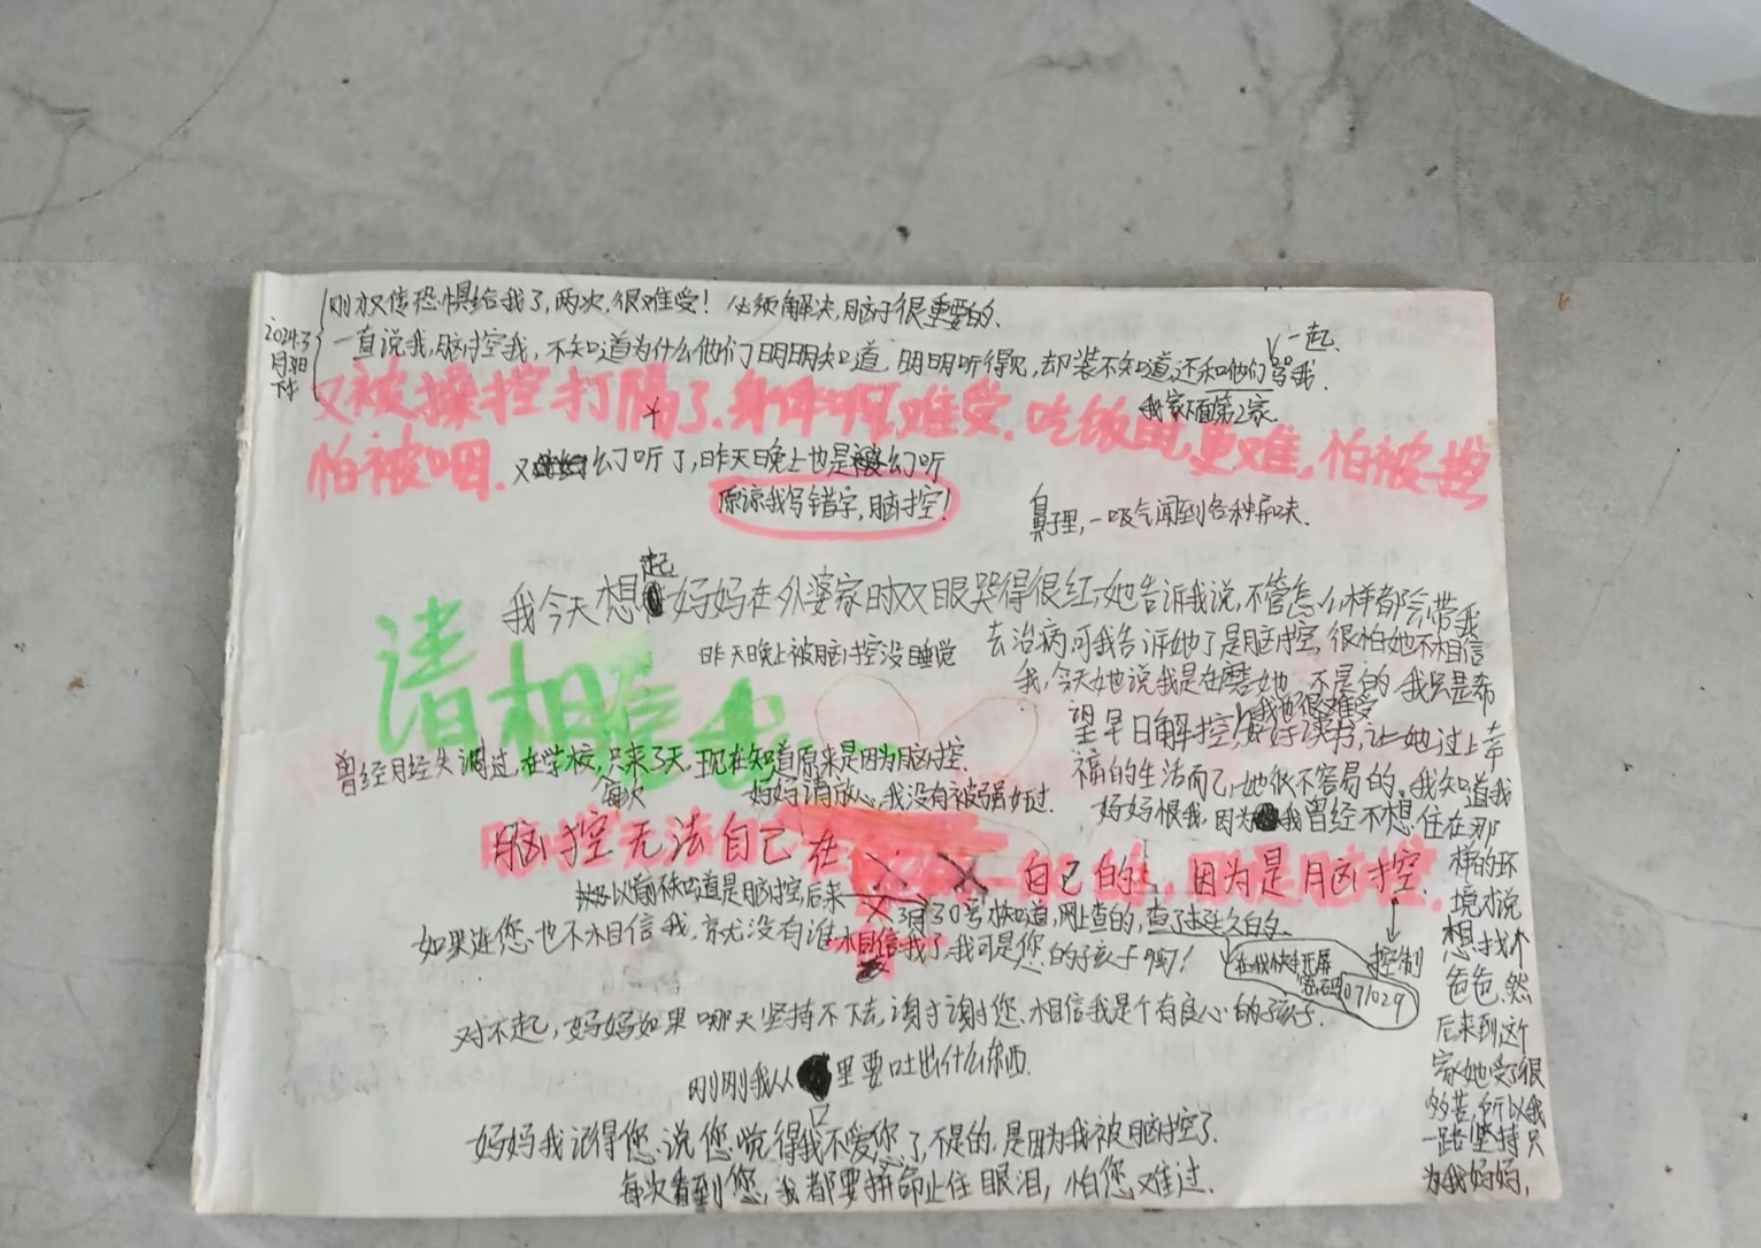 2024.3
月31日
下午
刚才又传恐惧给我了,两次,很难受!必须解决,脑子很重要的、
一直说我,脑控我,不知道为什么他们明明知道,明明听得见,却装不知道,还和他们一起骂我.
我家下面第2家.
又被操控打嗝了.身体啊难受.吃饭时,更难,怕被控
怕被咽.
又幻听了,昨天晚上也是幻听
原谅我写错字,脑控!
鼻子里,一吸气闻到各种异味.
我今天想起妈妈在外婆家时双眼哭得很红,她告诉我说,不管怎么样都会带我
去治病,可我告诉她了是脑控,很怕她不相信
我,今天她说我是在磨她,不是的,我只是希
望早日解控,好好读书,让她过上幸
我也很难受
福的生活而已,她很不容易的。我知道我
妈妈恨我,因为我曾经不想住在那
样的环
境才说
想找个
爸爸.然
后来到这个
家她受了很
多苦,所以我
一路坚持只
为我妈妈,
昨天晚上被脑控没睡觉
请相信我
曾经月经失调过,在学校,只来3天,现在知道原来是因为脑控.
每次
妈妈请放心,我没有被强奸过.
脑控无法自己在
自己的,因为是脑控.
以前不知道是脑控,后来
3月30号才知道,网上查的,查了挺久的、
控制
如果连您也不相信我,就没有谁相信我了.我可是您的孩子啊!
在我快手开屏
密码071029
对不起,妈妈如果哪天坚持不下去,谢谢您、相信我是个有良心的孩子.
刚刚我从口里要吐出什么东西.
妈妈我记得您说您觉得我不爱您了,不是的,是因为我被脑控了.
每次看到您,我都要拼命止住眼泪,怕您难过.